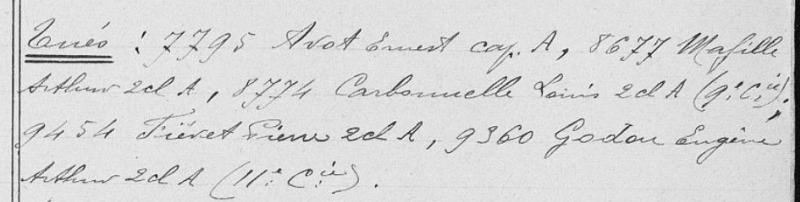 Tués : 7795 Avot Ernest cap. A, 8677 Mafille
Arthur 2cl A, 8774 Carbonnelle Louis 2cl A (9e Cie),
9454 Fiévet Pierre 2cl A, 9360 Godou Eugène
Arthur 2cl A (11e Cie).